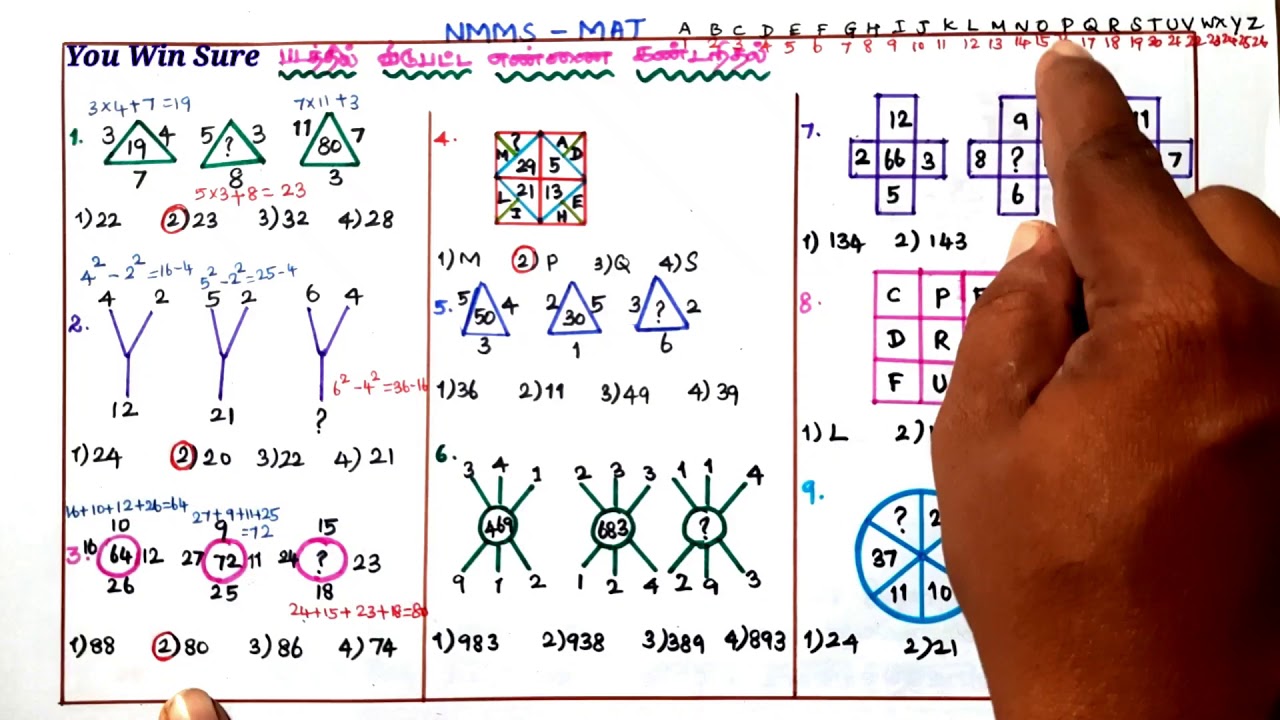 NMMS - MAT
A B C D E F G H I J K L M N O P Q R S T U V W X Y Z
1 2 3 4 5 6 7 8 9 10 11 12 13 14 15 17 18 19 20 21 22 23 24 25 26
You Win Sure படத்தில் விடுபட்ட எண்ணை கண்டறிதல்
1.
3×4+7=19 7×11+3
3 4 5 3 11 7
19 ? 80
7 8 3
5×3+8=23
1)22 2)23 3)32 4)28
2.
4²-2²=16-4 5²-2²=25-4
4 2 5 2 6 4
6²-4²=36-16
12 21 ?
1)24 2)20 3)22 4)21
3.
16+10+12+26=64 27+9+11+25
=72
10 9 15
16 64 12 27 72 11 24 ? 23
26 25 18
24+15+23+18=80
1)88 2)80 3)86 4)74
4.
? A
M D
29 5
21 13
L E
I H
1)M 2)P 3)Q 4)S
5.
5 4 2 5 3 2
50 30 ?
3 1 6
1)36 2)11 3)49 4)39
6.
3 4 1 2 3 3 1 1 4
469 683 ?
9 1 2 1 2 4 2 9 3
1)983 2)938 3)389 4)893
7.
12 9 11
2 66 3 8 ? 7
5 6
1)134 2)143
8.
C P
D R
F U
1)L 2)
9.
? 2
37
11 10
1)24 2)21